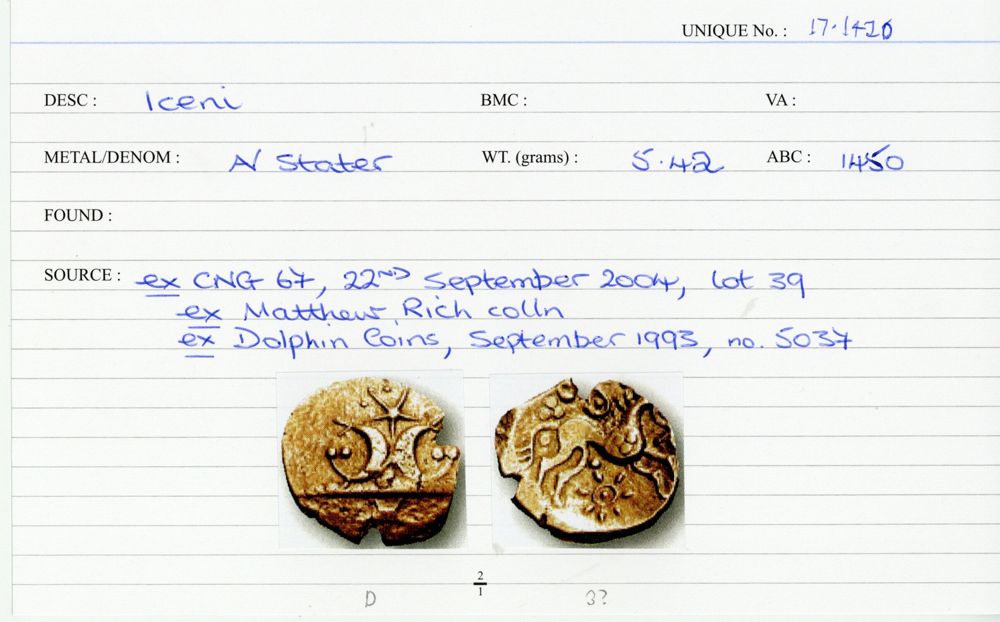 UNIQUE No. : 17.1420
DESC : Iceni BMC : VA :
METAL/DENOM : N Stater WT. (grams) : 5.42 ABC : 1450
FOUND :
SOURCE : ex CNG 67, 22ND September 2004, lot 39
ex Matthew Rich colln
ex Dolphin Coins, September 1993, no. 5037
2
1
D 3?